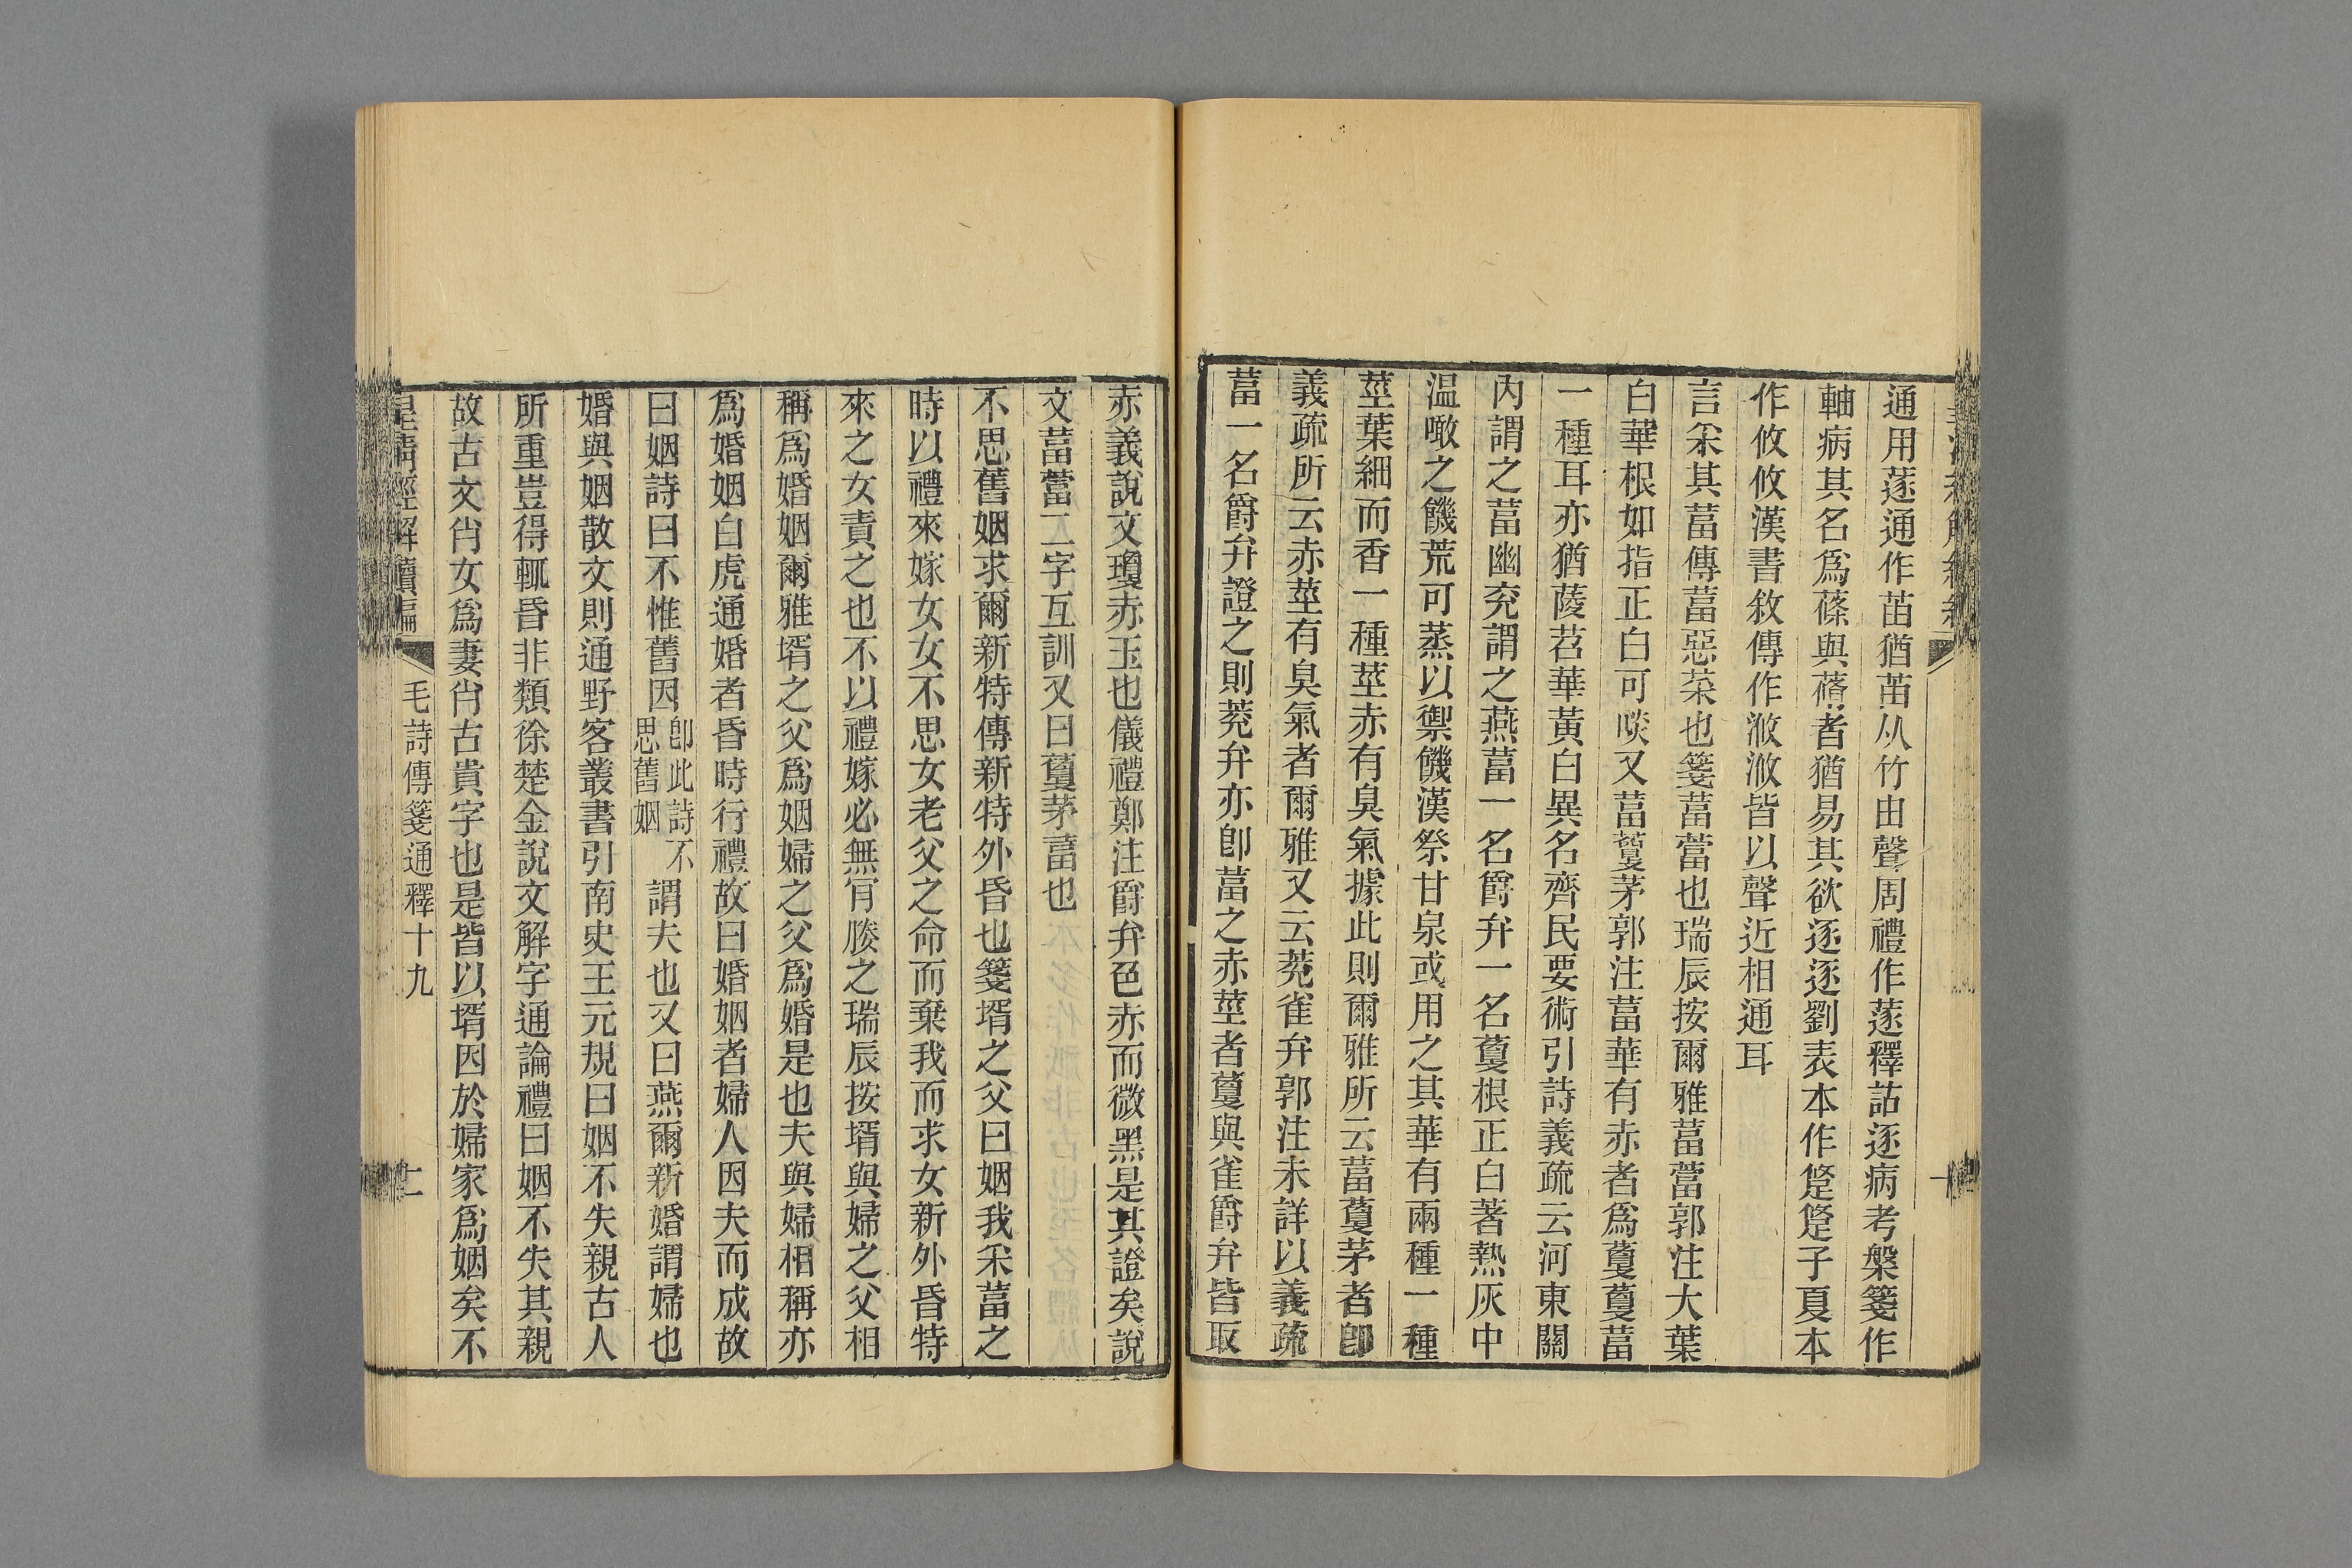 通用蓫通作苗猶苖从竹由聲周禮作蓫釋詁逐病考槃箋作
軸病其名爲蓨與蓨者猶易其欲逐逐劉表本作跾跾子夏本
作攸攸漢書敘傳作浟浟皆以聲近相通耳
言采其葍傳葍惡菜也箋葍䔰也瑞辰按爾雅葍䔰郭注大葉
白華根如指正白可啖又葍藑茅郭注葍華有赤者爲藑藑葍
一種耳亦猶蔆苕華黃白異名齊民要術引詩義疏云河東關
內謂之葍幽兗謂之燕葍一名爵弁一名藑根正白著熱灰中
温噉之饑荒可蒸以禦饑漢祭甘泉或用之其華有兩種一種
莖葉細而香一種莖赤有臭氣據此則爾雅所云葍藑茅者卽
義疏所云赤莖有臭氣者爾雅又云菟雀弁郭注未詳以義疏
葍一名爵弁證之則菟弁亦卽葍之赤莖者藑與雀爵弁皆取
赤義說文瓊赤玉也儀禮鄭注爵弁色赤而微黑是其證矣說
文葍䔰二字互訓又曰藑茅葍也
不思舊姻求爾新特傳新特外昏也箋壻之父曰姻我采葍之
時以禮來嫁女女不思女老父之命而棄我而求女新外昏特
來之女責之也不以禮嫁必無肎媵之瑞辰按壻與婦之父相
稱爲婚姻爾雅壻之父爲姻婦之父爲婚是也夫與婦相稱亦
爲婚姻白虎通婚者昏時行禮故曰婚姻者婦人因夫而成故
曰姻詩曰不惟舊因卽此詩不思舊姻謂夫也又曰燕爾新婚謂婦也
婚與姻散文則通野客叢書引南史王元規曰姻不失親古人
所重豈得輒昏非類徐楚金說文解字通論禮曰姻不失其親
故古文肻女爲妻肻古貴字也是皆以壻因於婦家爲姻矣不
皇清經解續編
毛詩傳箋通釋十九